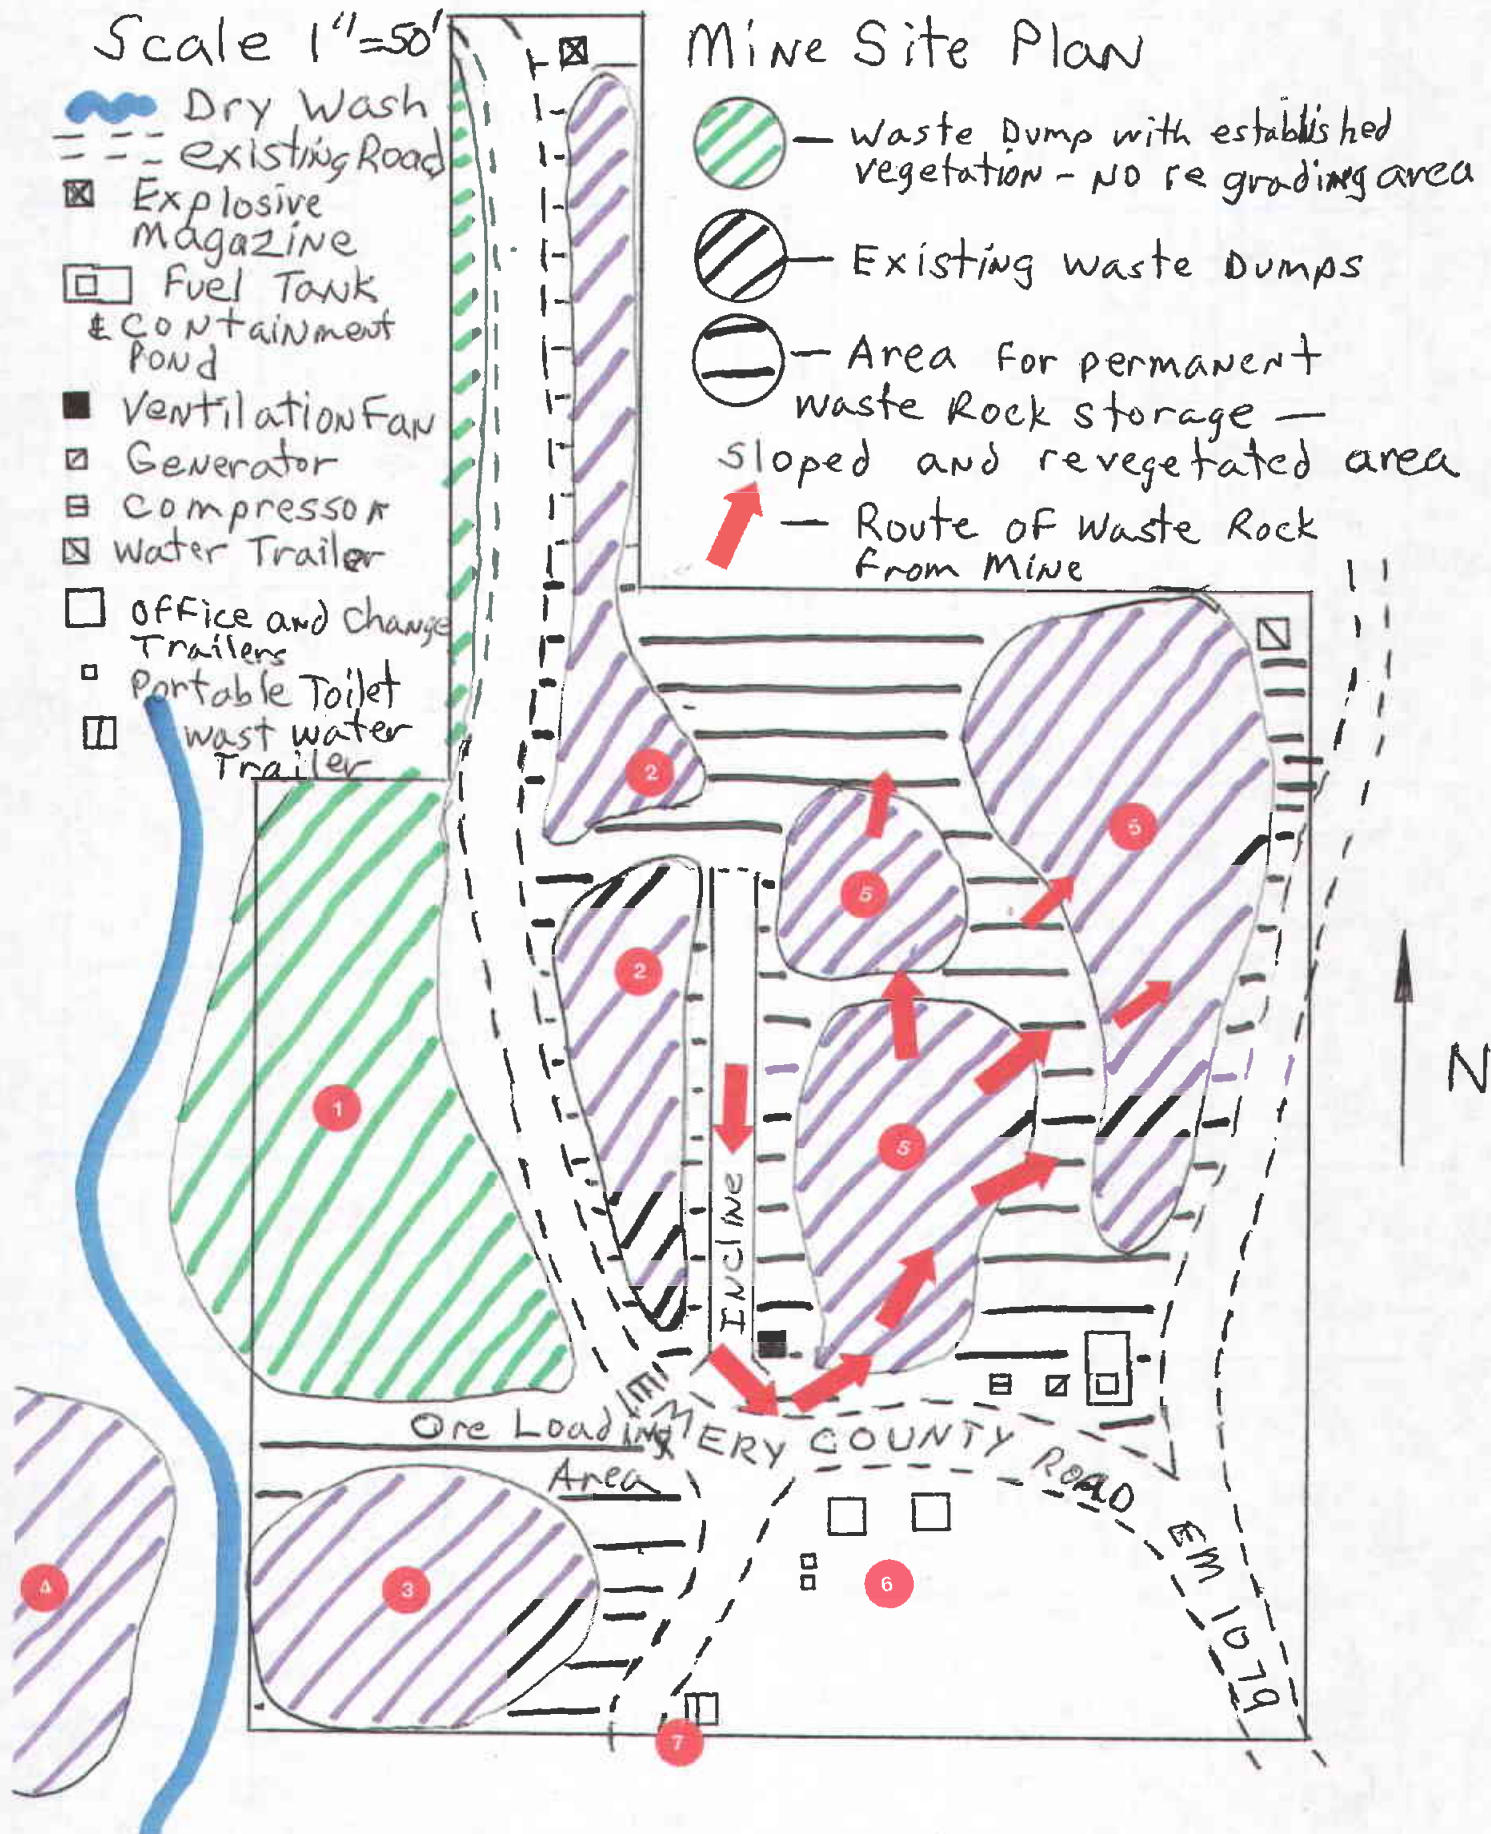 Scale 1"=50'
Dry Wash
existing Road
Explosive
Magazine
Fuel Tank
& Containment
Pond
Ventilation Fan
Generator
Compressor
Water Trailer
Office and Change
Trailers
Portable Toilet
Wast Water
Trailer
Mine Site Plan
Waste Dump with established
vegetation - No re grading area
Existing Waste Dumps
Area For permanent
Waste Rock Storage —
Sloped and revegetated area
Route of Waste Rock
From Mine
2
5
5
2
N
1
5
Incline
Ore Loading
Area
EMERY COUNTY ROAD EM 1079
4
3
6
7